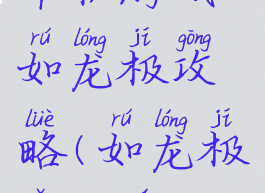 rú lóng jí gōng
如龙极攻
lüè rú lóng jí
略(如龙极